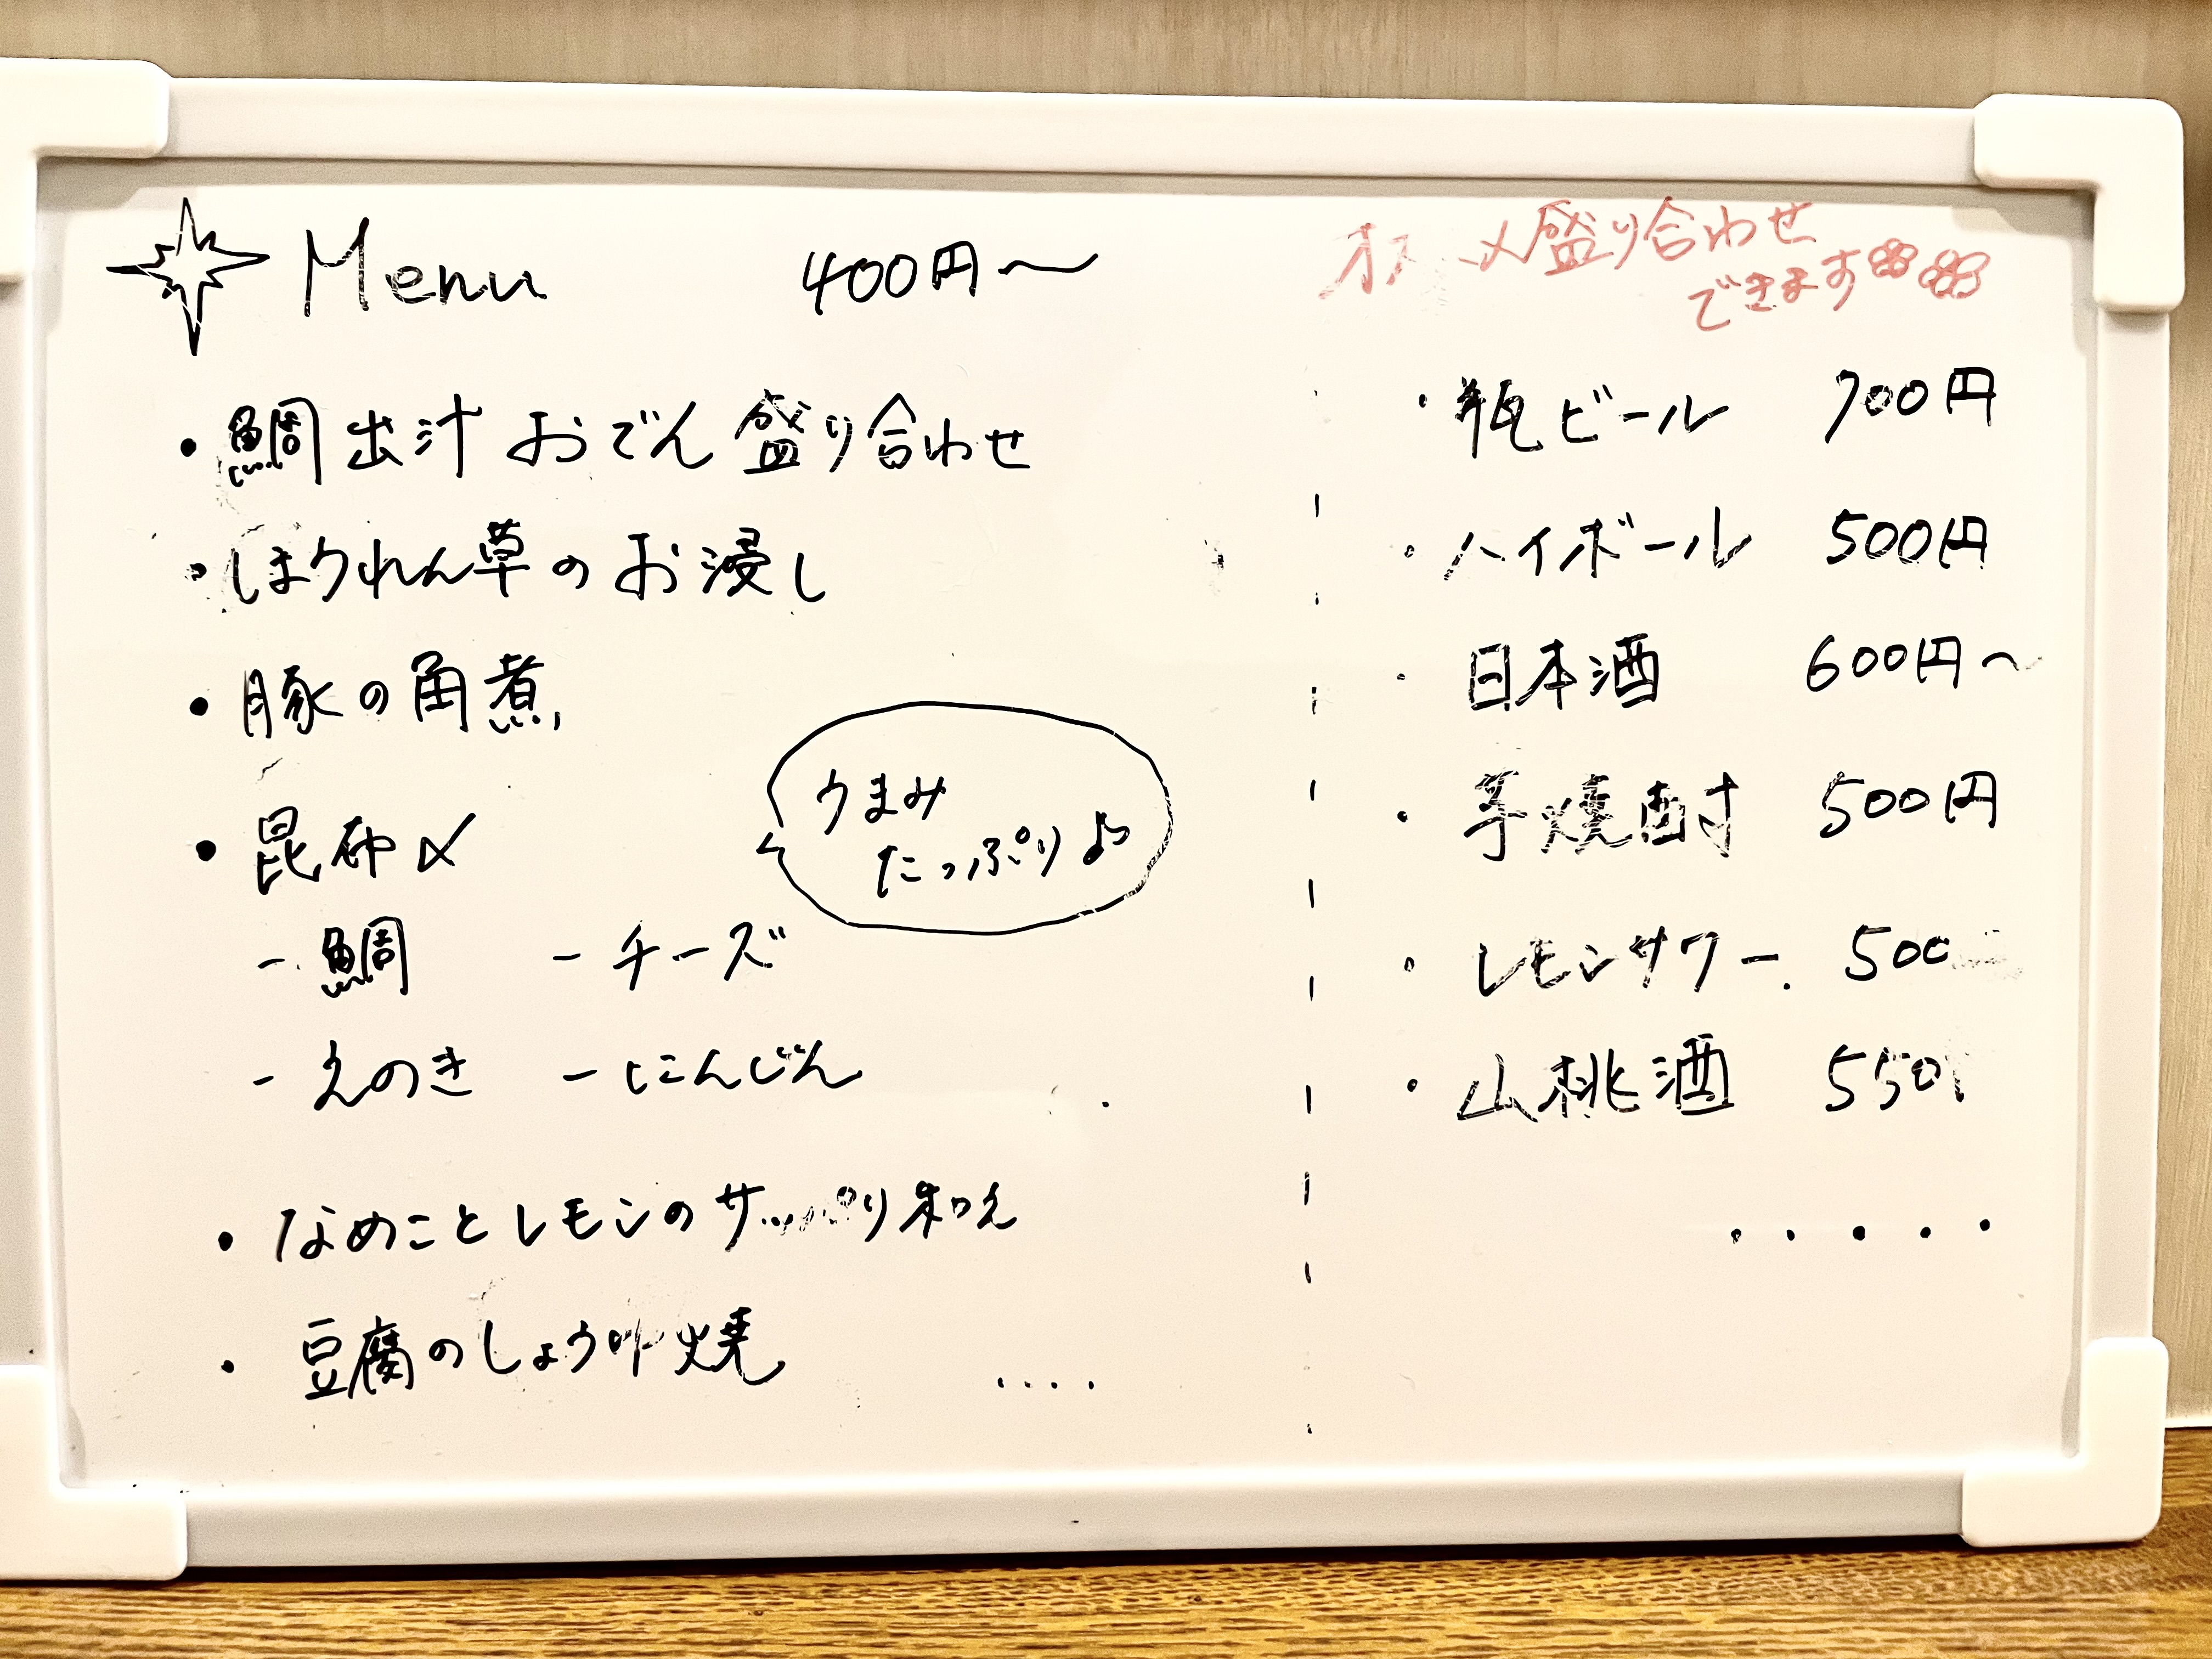 Menu 400円〜
・鯛出汁おでん盛り合わせ
・ほうれん草のお浸し
・豚の角煮
・昆布〆
うまみ
たっぷり♪
- 鯛 - チーズ
- えのき - にんじん
・なめことレモンのサッパリ和え
・豆腐のしょうゆ焼
....
盛り合わせ
できます
・瓶ビール 700円
・ハイボール 500円
・日本酒 600円〜
・芋焼酎 500円
・レモンサワー 500
・山桃酒 550
・・・・・